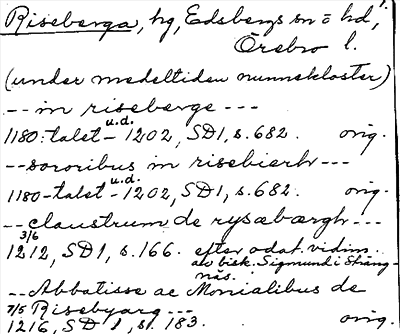 Riseberga, hg, Edsbergs sn o hd,
Örebro l.
(under medeltiden nunnekloster)
-- in riseberge ---
1180-talet - u.d. 1202, SD1, s. 682. orig.
-- sororibus in risebierh ---
1180-talet - u.d. 1202, SD1, s. 682. orig.
-- claustrum de rysæbærgh ---
3/6 1212, SD1, s. 166. efter odat. vidim.
av bisk. Sigmund i Sträng-
näs.
-- Abbatisse ac Monialibus de
7/5 Risebyarg ---
1216, SD 1, s. 183. orig.